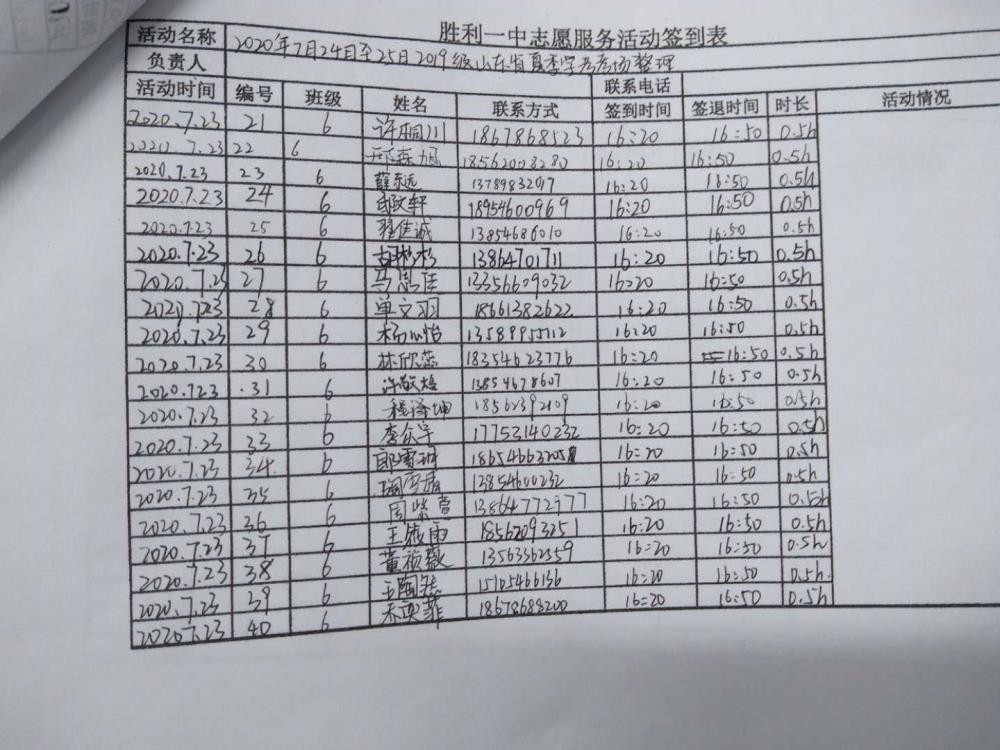 胜利一中志愿服务活动签到表
活动名称 2020年7月24日至25日2019级山东省夏季学考考场整理
负责人 联系电话
活动时间 编号 班级 姓名 联系方式 签到时间 签退时间 时长 活动情况
2020.7.23 21 6 许桐川 1867868523 16:20 16:50 0.5h
2020.7.23 22 6 18562008280 16:20 16:50 0.5h
2020.7.23 23 6 薛东远 13789832017 16:20 16:50 0.5h
2020.7.23 24 6 18954600969 16:20 16:50 0.5h
2020.7.23 25 6 翟佳诚 13854686010 16:20 16:50 0.5h
2020.7.23 26 6 13864701711 16:20 16:50 0.5h
2020.7.23 27 6 马思佳 13356609032 16:20 16:50 0.5h
2020.7.23 28 6 单文羽 18661382622 16:20 16:50 0.5h
2020.7.23 29 6 杨心怡 13589955112 16:20 16:50 0.5h
2020.7.23 30 6 林欣蕊 18354623776 16:20 16:50 0.5h
2020.7.23 31 6 许敬煊 13854678607 16:20 16:50 0.5h
2020.7.23 32 6 程泽坤 18562392109 16:20 16:50 0.5h
2020.7.23 33 6 17753140232 16:20 16:50 0.5h
2020.7.23 34 6 16:20 16:50 0.5h
2020.7.23 35 6 13854600232 16:20 16:50 0.5h
2020.7.23 36 6 周紫萱 13864772977 16:20 16:50 0.5h
2020.7.23 37 6 18562093251 16:20 16:50 0.5h
2020.7.23 38 6 13563362559 16:20 16:50 0.5h
2020.7.23 39 6 16:20 16:50 0.5h
2020.7.23 40 6 18678688200 16:20 16:50 0.5h